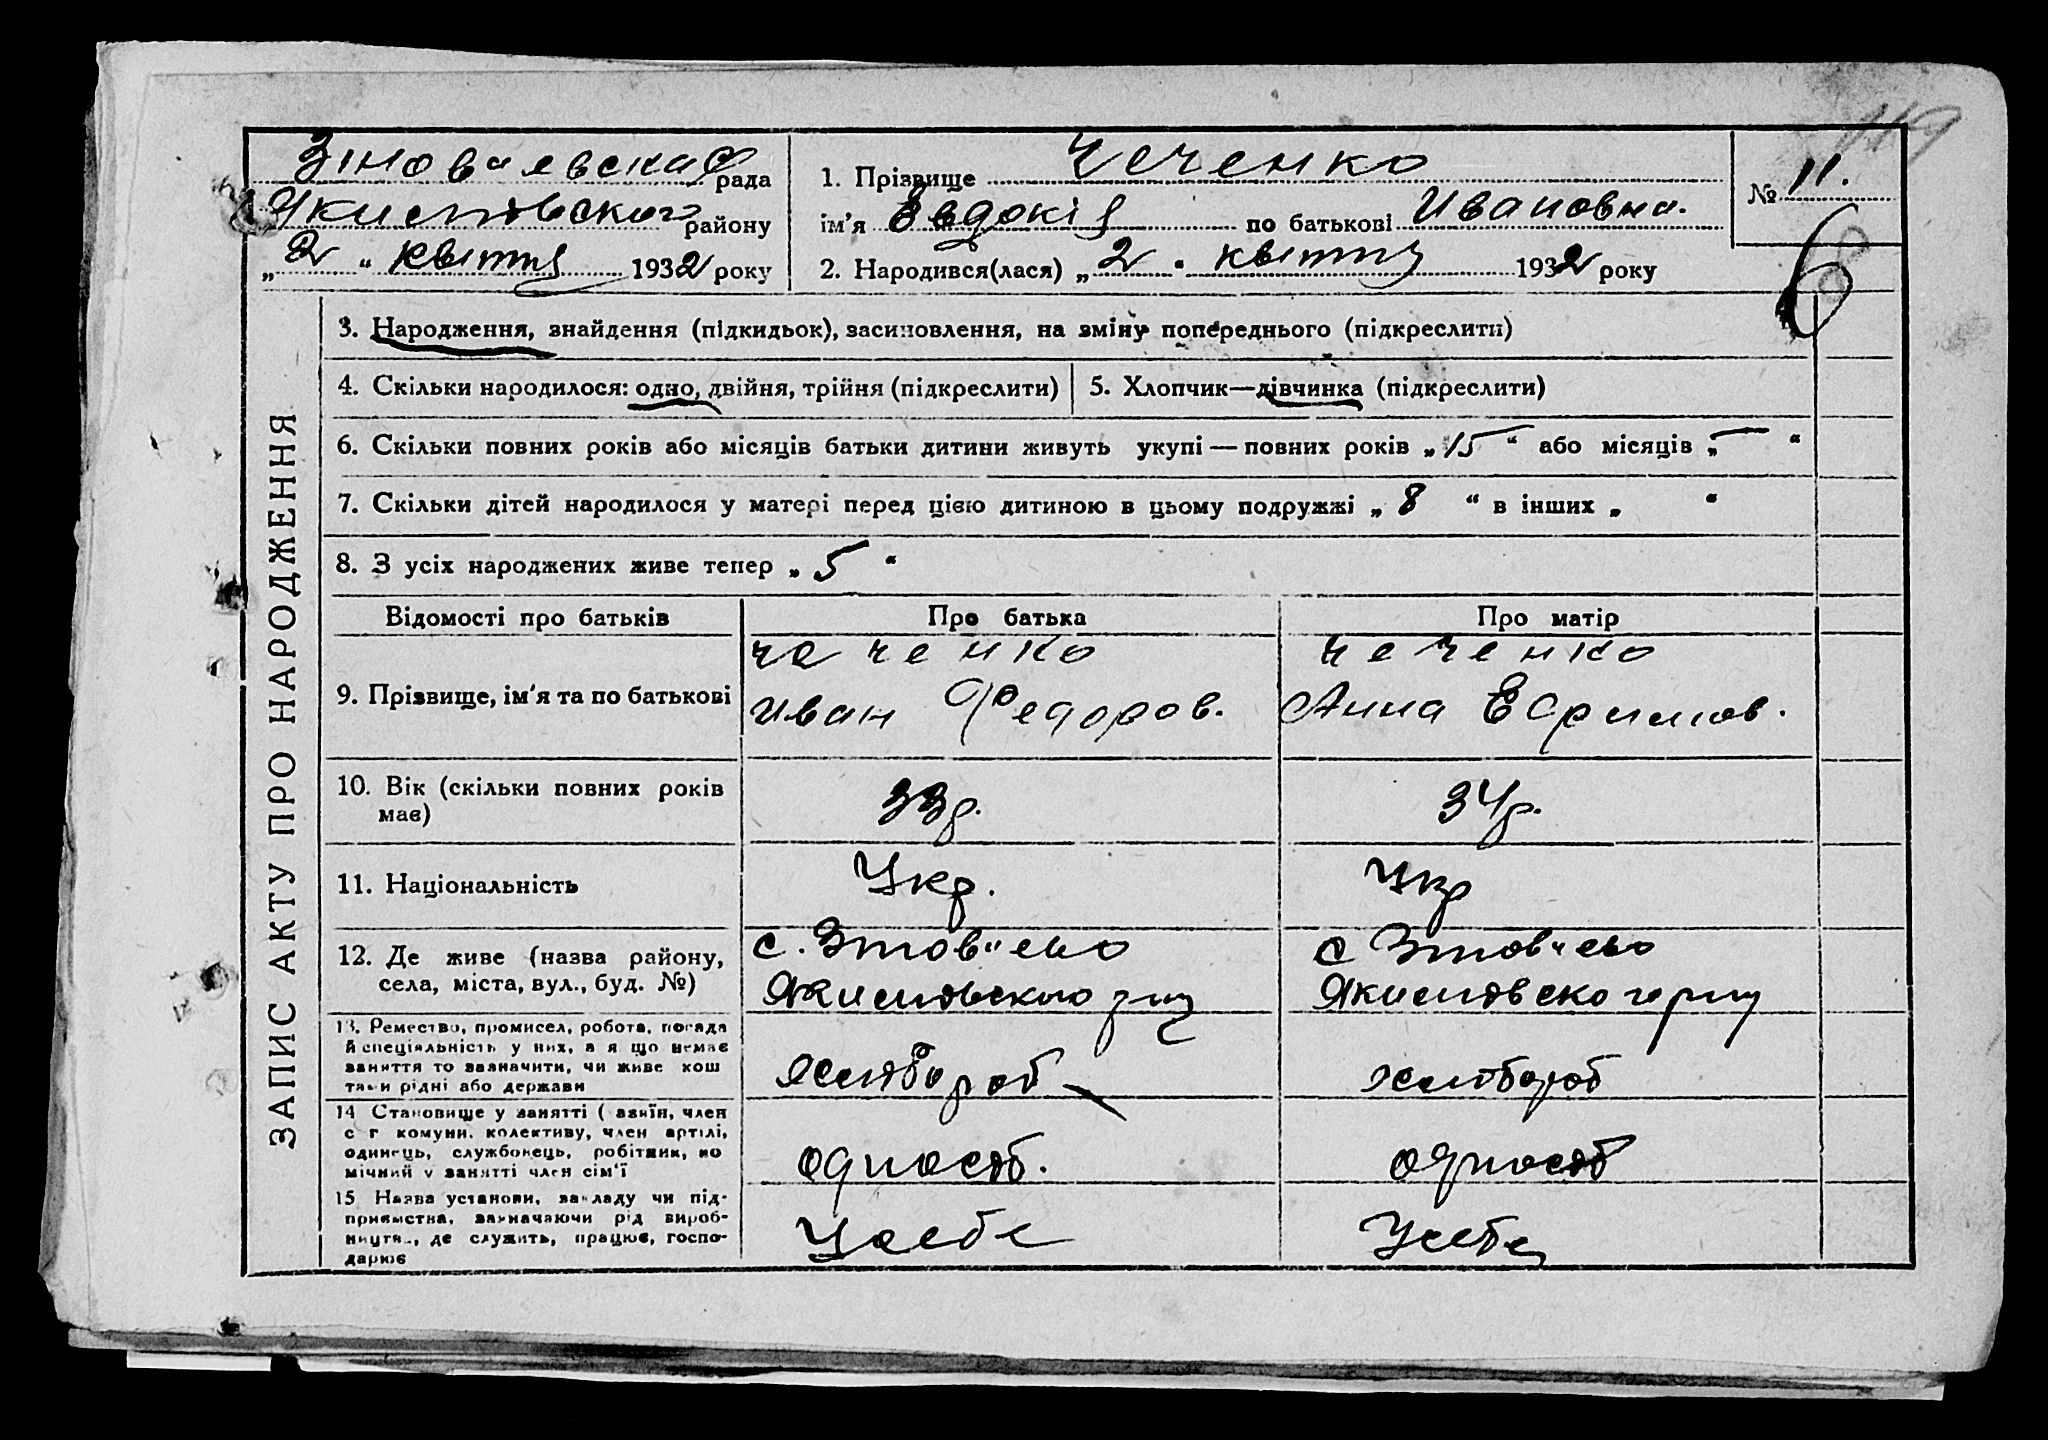 119
рада
району
„2“ квітня 1932 року
1. Прізвище Чеченко
ім'я Евдокія по батькові Ивановна.
2. Народився(лася) „2“ квітня 1932 року
№ 11.
6
ЗАПИС АКТУ ПРО НАРОДЖЕННЯ
3. Народження, знайдення (підкидьок), засиновлення, на зміну попереднього (підкреслити)
4. Скільки народилося: одно, двійня, трійня (підкреслити)
5. Хлопчик—дівчинка (підкреслити)
6. Скільки повних років або місяців батьки дитини живуть укупі — повних років „15“ або місяців „—“
7. Скільки дітей народилося у матері перед цією дитиною в цьому подружжі „8“ в інших „ “
8. З усіх народжених живе тепер „5“
Відомості про батьків
Про батька
Про матір
9. Прізвище, ім'я та по батькові
Чеченко
Иван Федоров.
Чеченко
Анна Ефимов.
10. Вік (скільки повних років
має)
33р.
34р.
11. Національність
Укр.
Укр
12. Де живе (назва району,
села, міста, вул., буд. №)
с.
с
13. Ремество, промисел, робота, посада
й спеціяльність у них, а я що немає
заняття то зазначити, чи живе кош
тами рідні або держави
хлібороб
хлібороб
14 Становище у занятті (
член
с г комуни, колективу, член артілі,
одинець, службовець, робітник, по
мічний у занятті член сім'ї
одноосіб.
одноосіб
15 Назва установи, закладу чи під-
приємства, зазначаючи рід вироб-
ництва, де служить, працює, госпо-
дарює
У себе
У себе